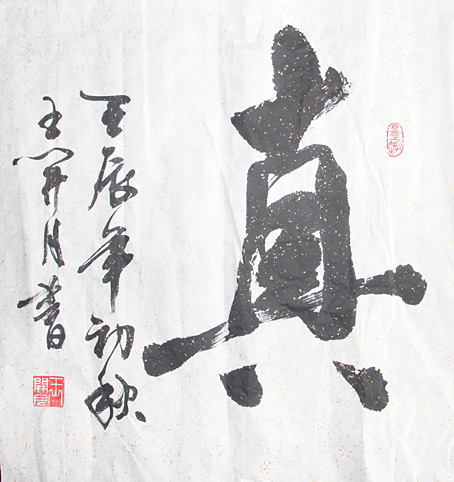 真
壬辰年初秋
王開月書